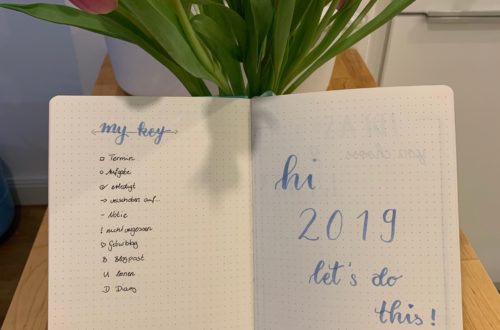 my key
□ Termin
○ Aufgabe
✓ erledigt
→ verschoben auf...
- Notiz
! nicht vergessen
♡ Geburtstag
B Blogpost
U lernen
D Diary
hi
2019
let's do
this!